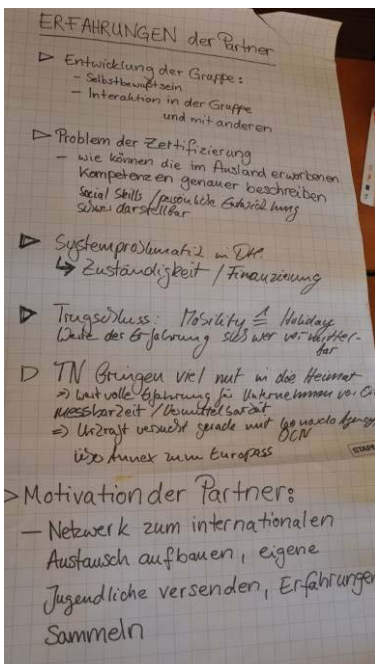 ERFAHRUNGEN der Partner
▷ Entwicklung der Gruppe:
- Selbstbewußtsein
- Interaktion in der Gruppe
und mit anderen
▷ Problem der Zertifizierung
- wie können die im Ausland erworbenen
Kompetenzen genauer beschreiben
social skills / persönliche Entwicklung
schwer darstellbar
▷ Systemproblematik in
↳ Zuständigkeit / Finanzierung
▷ Trugschluss: Mobility ≙ Holiday
Weite der Erfahrung schwer vermittel-
bar
▷ TN bringen viel mit in die Heimat
=> wertvolle Erfahrung für Unternehmen vor
Messbarkeit /
=> versucht gerade mit Leonardo Agency
OCN
über Annex zum Europass
> Motivation der Partner:
- Netzwerk zum internationalen
Austausch aufbauen, eigene
Jugendliche versenden, Erfahrungen
Sammeln